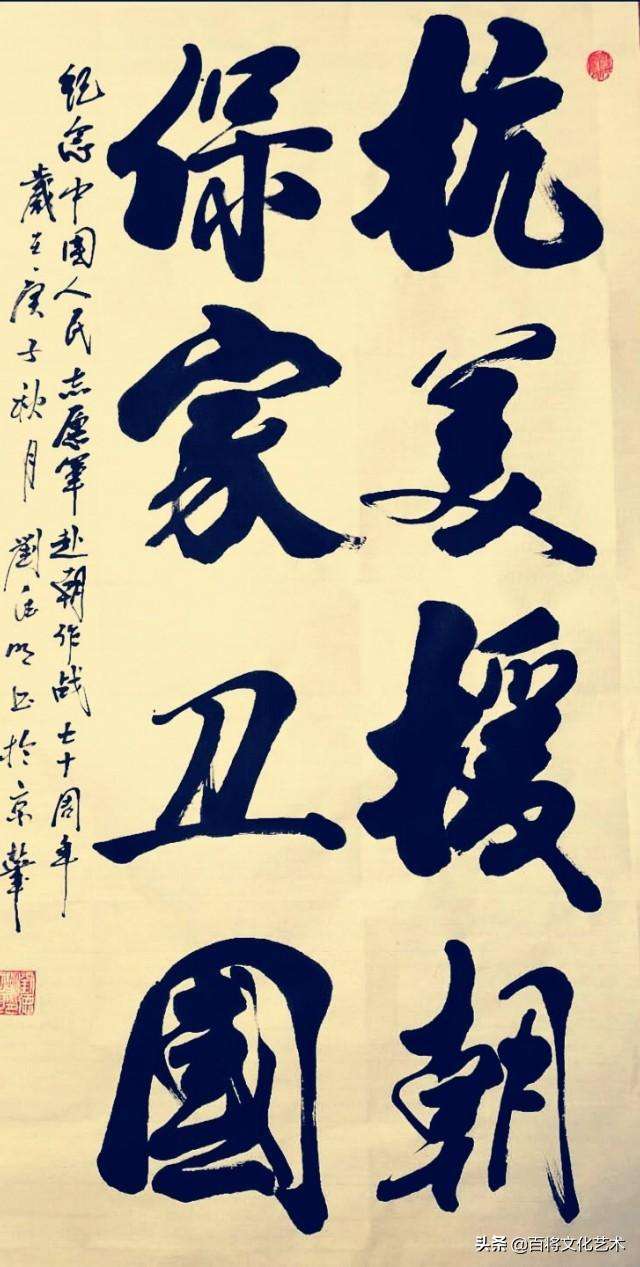 抗美援朝
保家卫國
纪念中國人民志愿軍赴朝作战七十周年
歲在庚子秋月 劉 书於京華
头条 @百将文化艺术